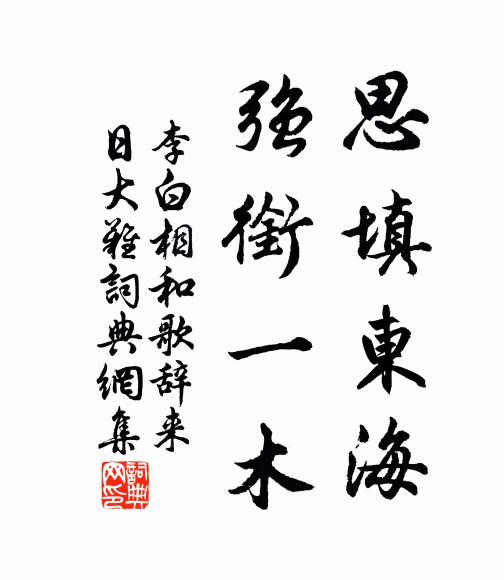 思填東海
強銜一木
李白相和歌辞来
日大難詞典網集
詞典
网印